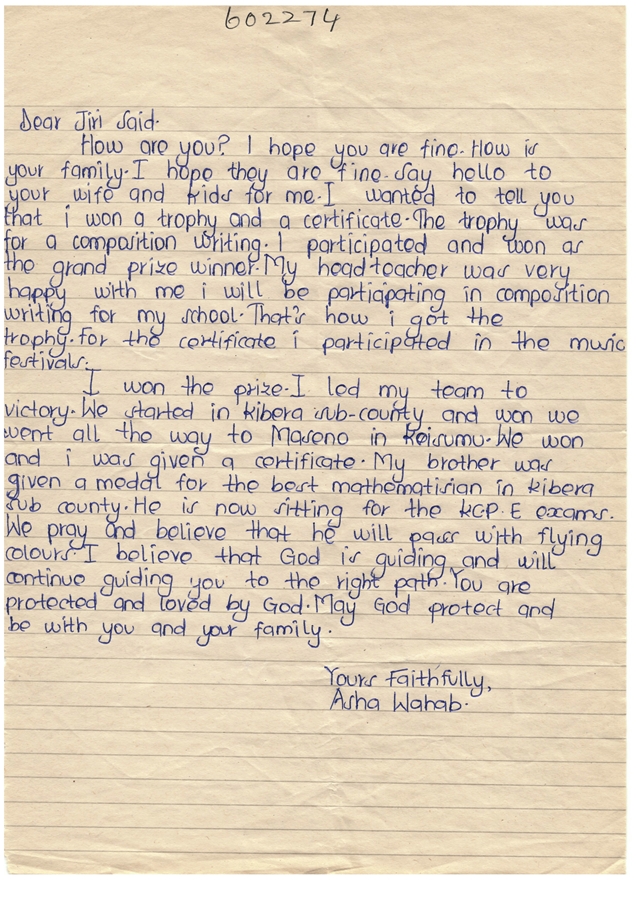 602274
Dear Jiri Said.
How are you? I hope you are fine. How is
your family. I hope they are fine. Say hello to
your wife and kids for me. I wanted to tell you
that i won a trophy and a certificate. The trophy was
for a composition writing. I participated and won as
the grand prize winner. My headteacher was very
happy with me i will be participating in composition
writing for my school. That's how i got the
trophy. for the certificate i participated in the music
festivals.
I won the prize. I led my team to
victory. We started in kibera sub-county and won we
went all the way to Maseno in Keisumu. We won
and i was given a certificate. My brother was
given a medal for the best mathematisian in kibera
sub county. He is now sitting for the KCP.E exams.
We pray and believe that he will pass with flying
colours. I believe that God is guiding and will
continue guiding you to the right path. You are
protected and loved by God. May God protect and
be with you and your family.
Yours Faithfully,
Asha Wahab.